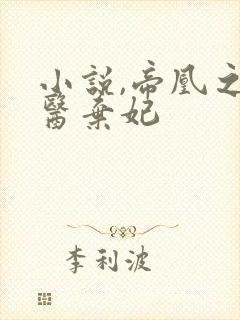 小説,帝凰之
醫棄妃
李利波